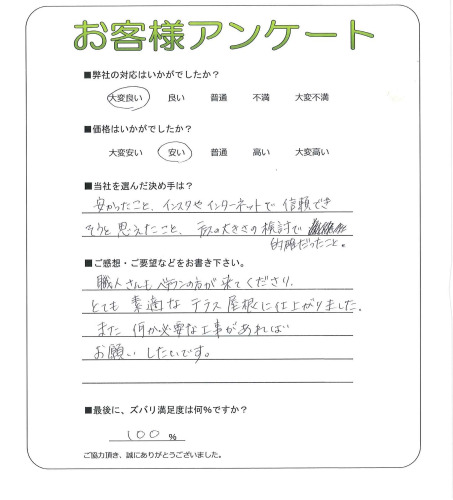 お客様アンケート
■弊社の対応はいかがでしたか？
大変良い 良い 普通 不満 大変不満
■価格はいかがでしたか？
大変安い 安い 普通 高い 大変高い
■当社を選んだ決め手は？
安かったこと、インスタやインターネットで信頼でき
そうと思えたこと、テラスの大きさの検討で
的確だったこと。
■ご感想・ご要望などをお書き下さい。
職人さんもベテランの方が来てくださり、
とても素適なテラス屋根に仕上がりました。
また何か必要な工事があれば
お願いしたいです。
■最後に、ズバリ満足度は何％ですか？
100 %
ご協力頂き、誠にありがとうございました。